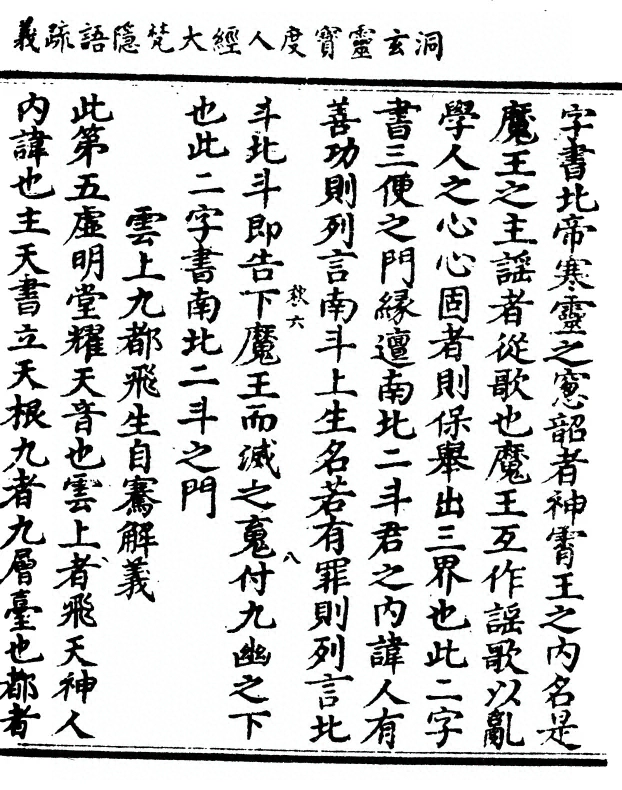 洞玄靈寶度人經大梵隱語疏義
字書北帝寒靈之窓韶者神霄王之內名是
魔王之主謡者從歌也魔王互作謡歌以亂
學人之心心固者則保舉出三界也此二字
書三便之門縁邅南北二斗君之內諱人有
善功則列言南斗上生名若有罪則列言北
敕六
八
斗北斗即告下魔王而滅之䰟付九幽之下
也此二字書南北二斗之門
雲上九都飛生自騫解義
此第五虛明堂耀天音也雲上者飛天神人
內諱也主天書立天根九者九層臺也都者